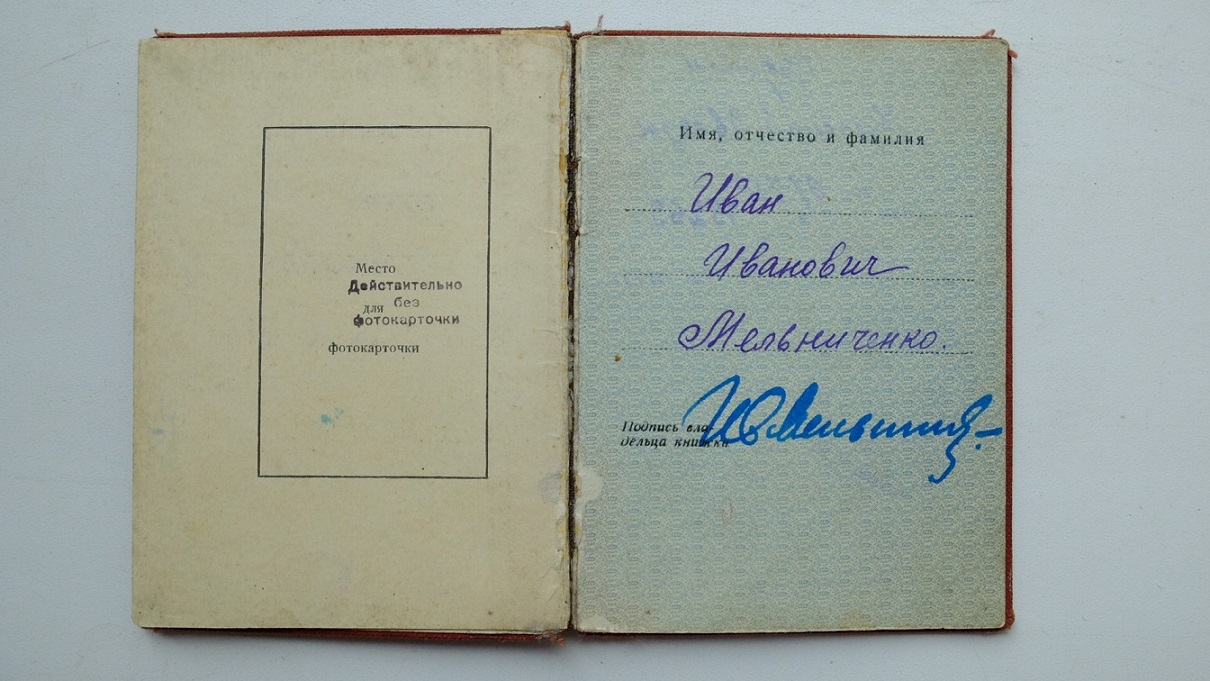 Место
Действительно
для без
фотокарточки
фотокарточки
Имя, отчество и фамилия
Иван
Иванович
Мельниченко.
Подпись вла-
дельца книжки